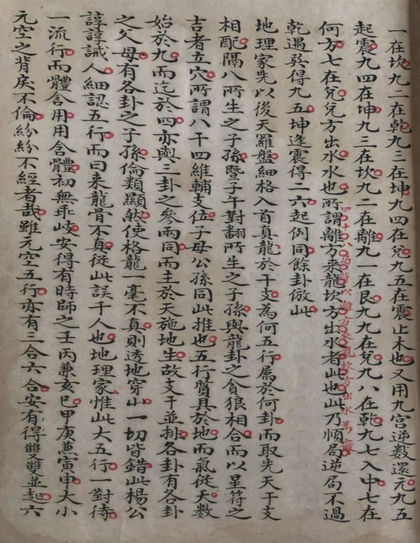 一在坎九二在乾九三在坤九四在兌九五在震止木也又用九宮逆数還元九五
起震九四在坤九三在坎九二在離九一在艮九九在兌九八在乾九七入中七在
何方七在兌兌方出水水也所謂離方來龍坎方出水者此也此乃順局逆局不過
乾遇兌得九五坤逢震得二六起例同餘卦倣此
地理家先以後天羅盤細格入首真龍於干支為何五行屬於何卦而取先天干支
相配隔八所生之子孫暨子午對翻所生之子孫與龍卦之貪狼相合而以呈符之
吉者立穴所謂八干四維輔支位子母公孫同此推也五行質具於地而氣從天数
始於九而迄於四亦與三卦之參兩同而主於天施地生故支干並排各卦有各卦
之父母有各卦之子孫倫類顯然使格龍一毫不真則透地穿山一切皆錯此楊公
諄諄誡人細認五行而曰来龍骨不真從此誤千人也地理家惟此大五行一對待
一流行而體含用用含體初無乖歧安得有時師之壬丙兼亥巳甲庚兼寅申大小
元空之背戾不倫紛紛不經者哉雖元空五行亦有三合六合安有得雙雙並起六